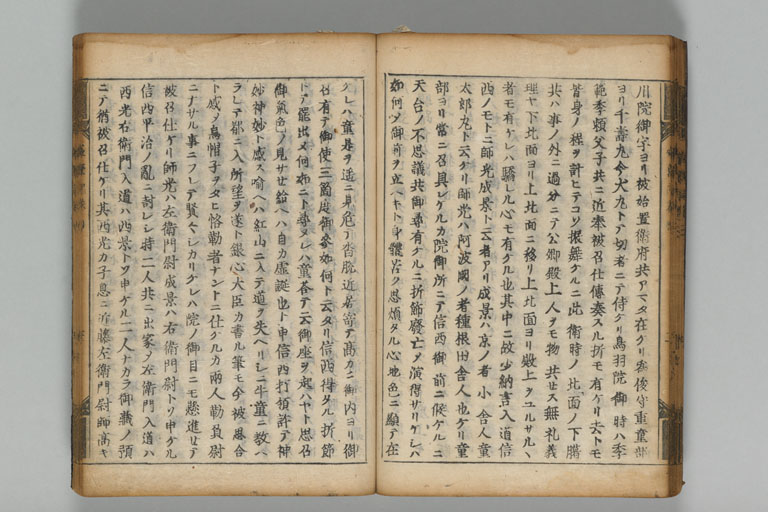 川院御宇ヨリ被始置衛府共アマタ在ケリ
ヨリ千壽丸今犬丸トテ切者ニテ侍ケリ鳥羽院御時ハ季
範季頼父子共ニ近奉被召仕傳奏スル折モ有ケリ去トモ
皆身ノ程ヲ計ヒテコソ振舞ケルニ此御時ノ北面ノ下臈
共ハ事ノ外ニ過分ニテ公卿殿上人ヲモ物共セス無礼義
理ヤ下北面ヨリ上北面ニ移リ上北面ヨリ殿上ヲユルサルヽ
者モ有ケレハ驕レル心モ有ケル也其中ニ故少納言入道信
西ノモトニ師光成景ト云者アリ成景ハ京ノ者小舎人童
太郎丸ト云ケリ師光ハ阿波國ノ者種根田舎人也ケリ童
部ヨリ常ニ召具レケルカ院御所ニテ信西御前ニ候ケルニ
天台ノ不思議共御尋有ケルニ折節癈亡メ演得サリケレハ
如何メ御前ヲ立ヘキト身體谷ク思煩タル心地色ニ顕テ在
ケレハ童是ヲ遥ニ見危テ沓脱近者寄テ高カニ御内ヨリ御
召有テ御使三箇度御参如何ト云タリ信西得タル折節
トテ罷出メ何ニト尋メレハ童荅テ云御座ヲ起ハヤト思召
御氣色ノ見サセ給ヘハ自カ虚誕也ト申信西打領許テ神
妙神妙ト感ス喩ヘハ紅山ニ入テ道ヲ失ヘリシニ牛童ニ教ヘ
ラレテ都ニ入所望ヲ遂ト銀心大臣カ書ル筆モ今被思合
ト威ヲ烏帽子ヲタヒ恪勤者ナントニ仕ケルカ両人勒負尉
ニナサル事ニフレテ賢キシカリケレハ院ノ御目ニモ懸進セテ
被召仕ケリ師光ハ左衛門尉成景ハ右衛門尉トソ申ケル
信西平治ノ亂ニ討レシ時二人共ニ出家メ左衛門入道ハ
西光右衛門入道ハ西景トソ申ケル二人ナカラ御藏ノ預
ニテ猶被召仕ケリ其西光カ子息ニ近藤左衛門尉師高キ